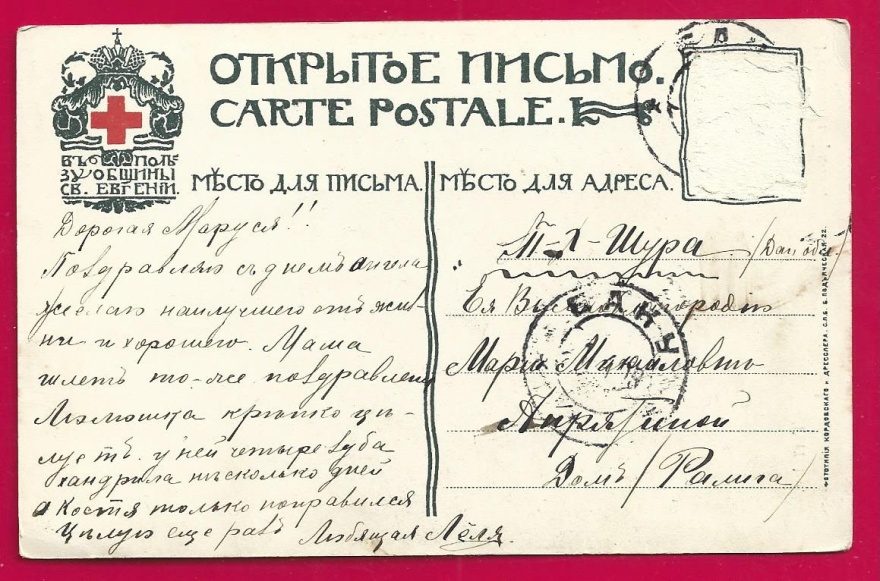 ОТКРЫТОЕ ПИСЬМО.
CARTE POSTALE.
ВЪ ПОЛЬ-
ЗУ ОБЩИНЫ
СВ. ЕВГЕНІИ.
МѢСТО ДЛЯ ПИСЬМА.
Дорогая Маруся!!
Поздравляю съ днемъ ангела
желаю наилучшего отъ жиз-
ни и хорошего. Мама
шлетъ то-же поздравленіе
крѣпко цѣ-
луетъ. у ней четыре зуба
хандрила нѣсколько дней
а Костя только поправился
Цѣлую еще разъ Любящая Лёля.
МѢСТО ДЛЯ АДРЕСА.
Т-Х-Шура
Ея Высокоблагородію
БАКУ
Маріи Михайловнѣ
Домъ
ФОТОТИПІЯ КОРДОВСКАГО и ДРЕССЛЕРА. С.П.Б. Б. ПОДЪЯЧЕСКАЯ 22.